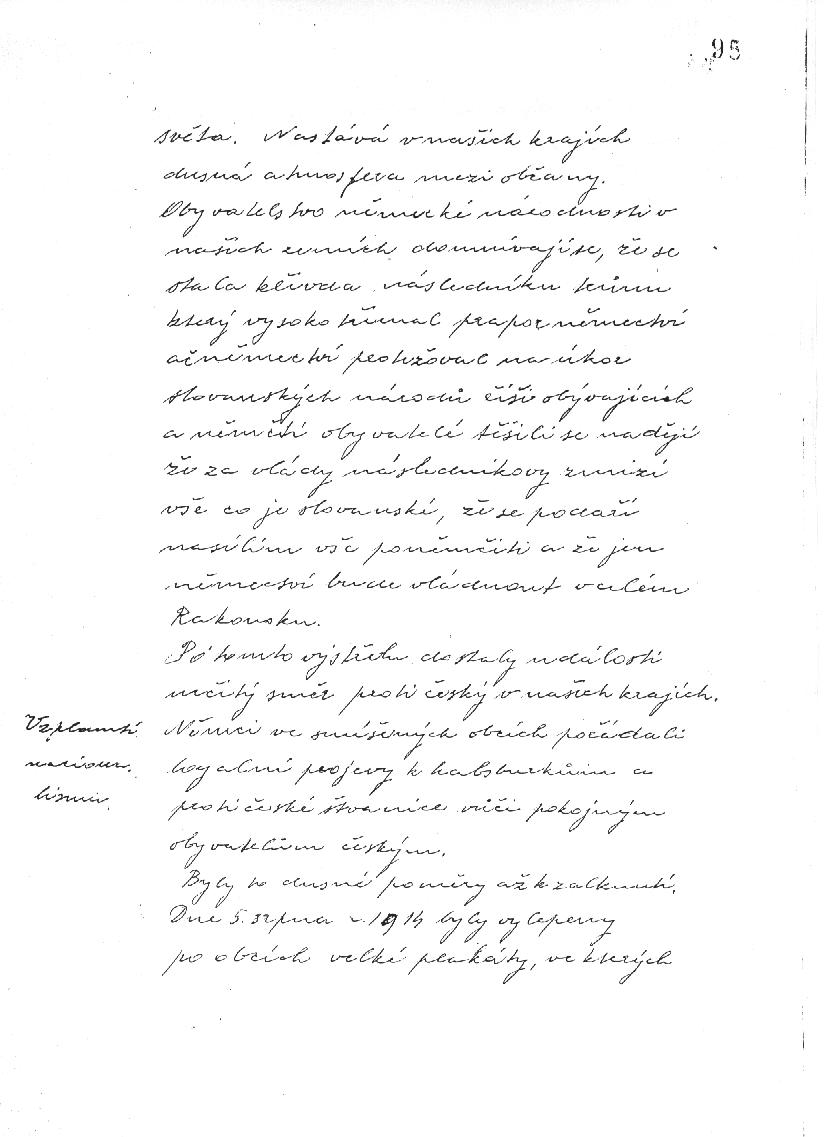 95
světa. Nastává v našich krajích
dusná atmosfera mezi občany.
Obyvatelstvo německé národnosti v
našich zemích domnívajíse, že se
stala křivda následníku trůnu
který vysoko třímal prapor němectví
a němectví protežoval na úkor
slovanských národů říši obývajících
a němčtí obyvatelé těšili se nadějí
že za vlády následníkovy zmizí
vše co je slovanské, že se podaří
násilím vše poněmčiti a že jen
němectví bude vládnout v celém
Rakousku.
Po tomto výstřelu dostaly události
určitý směr proti český v našich krajích.
Vzplanutí
naciona-
lismu.
Němci ve smíšených obcích pořádali
loyalní projevy k habsburkům a
protičeské štvanice vůči pokojným
obyvatelům českým.
Byly to dusné poměry až k zalknutí.
Dne 5. srpna r. 1914 byly vylepeny
po obcích velké plakáty, ve kterých